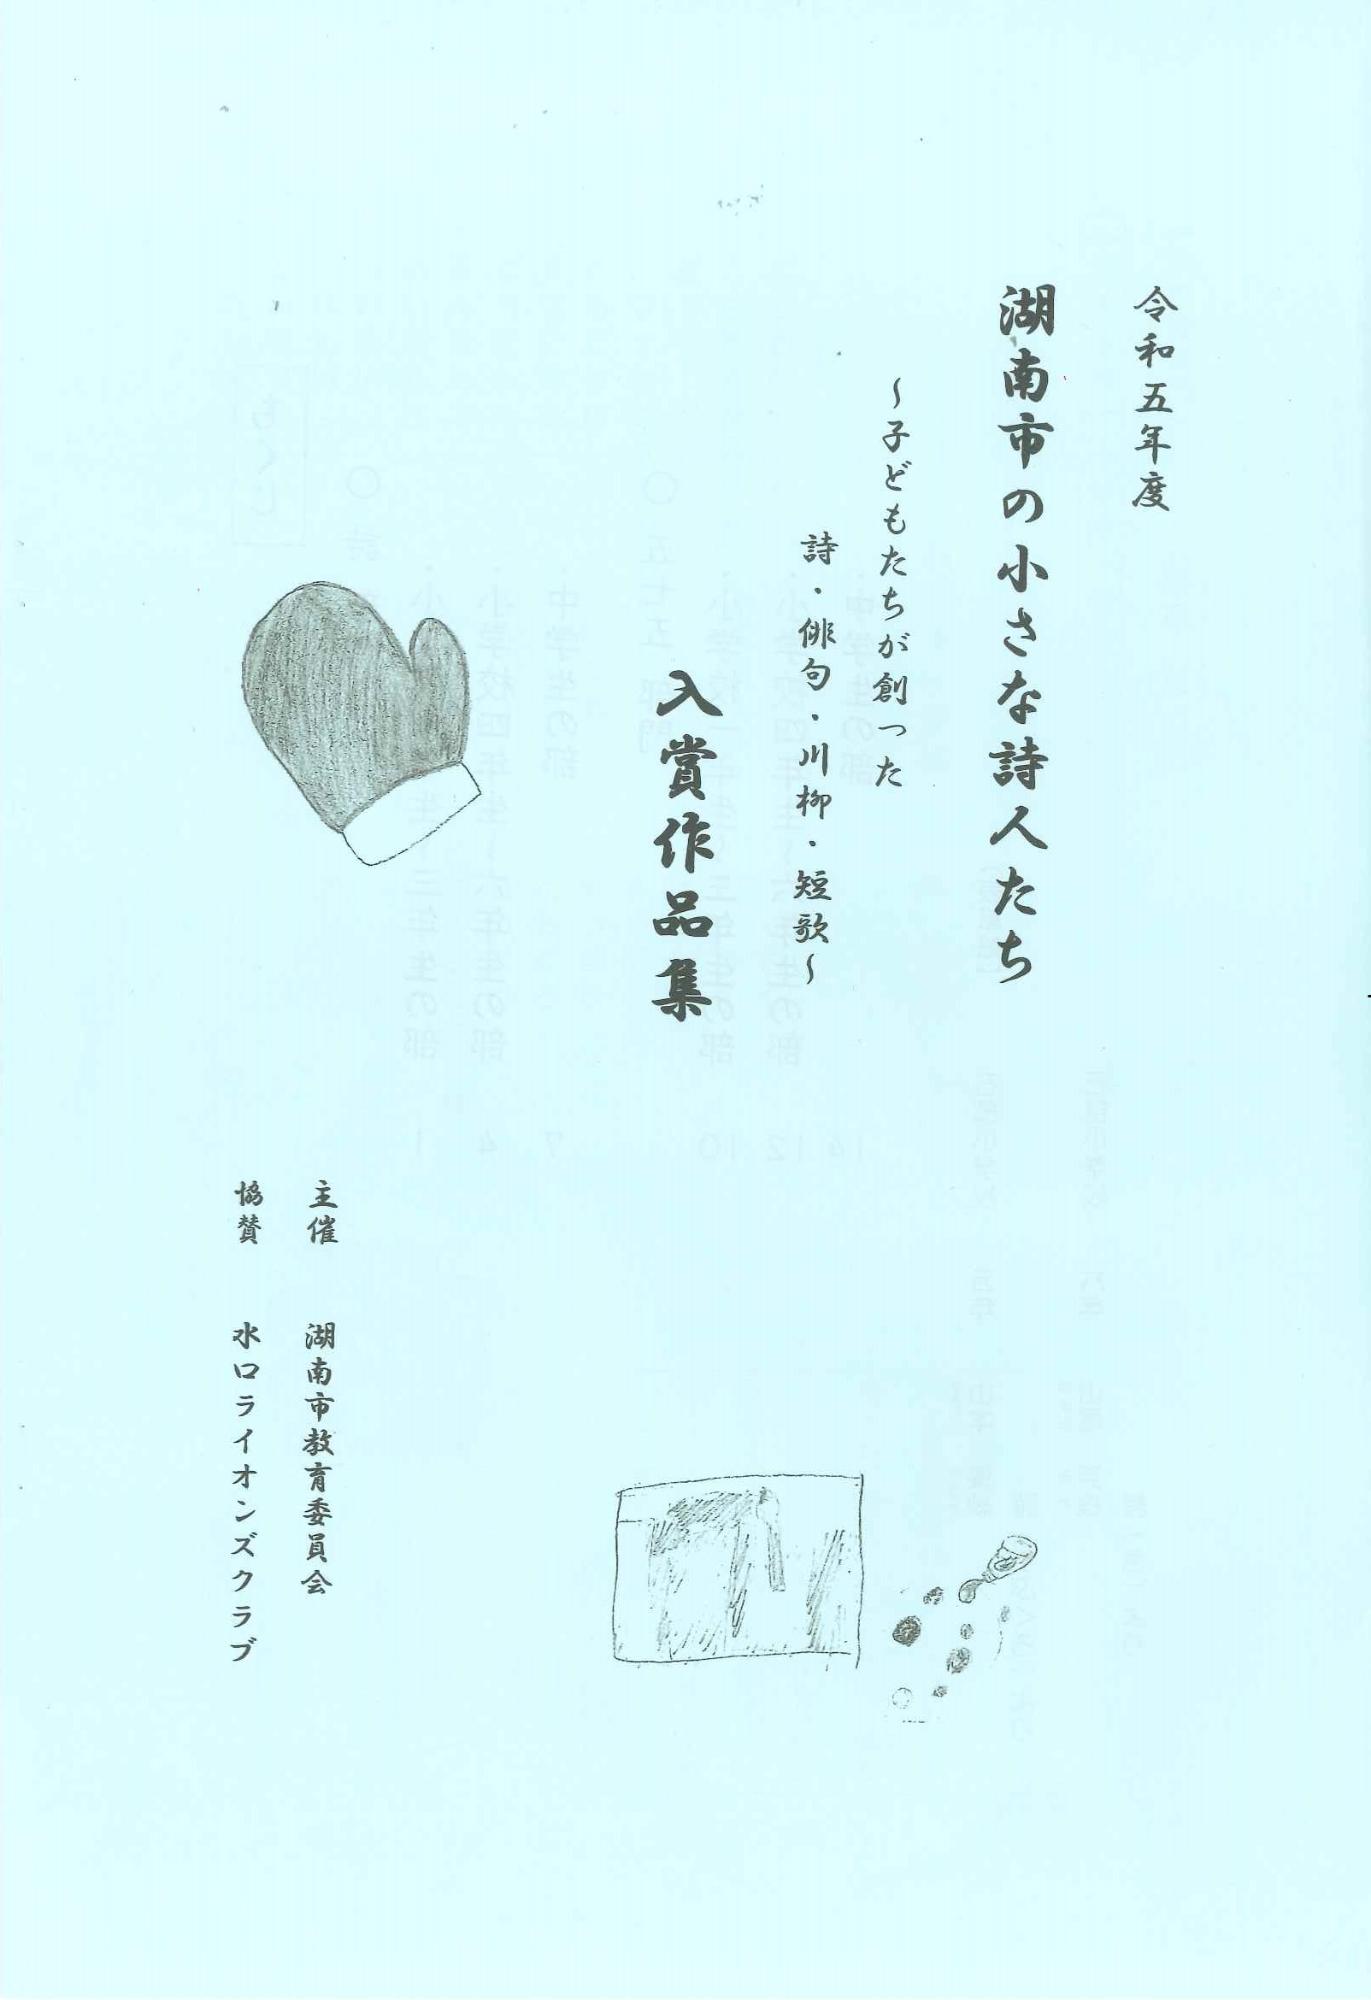 令和五年度
湖南市の小さな詩人たち
～子どもたちが創った
詩・俳句・川柳・短歌～
入賞作品集
主催 湖南市教育委員会
協賛 水口ライオンズクラブ